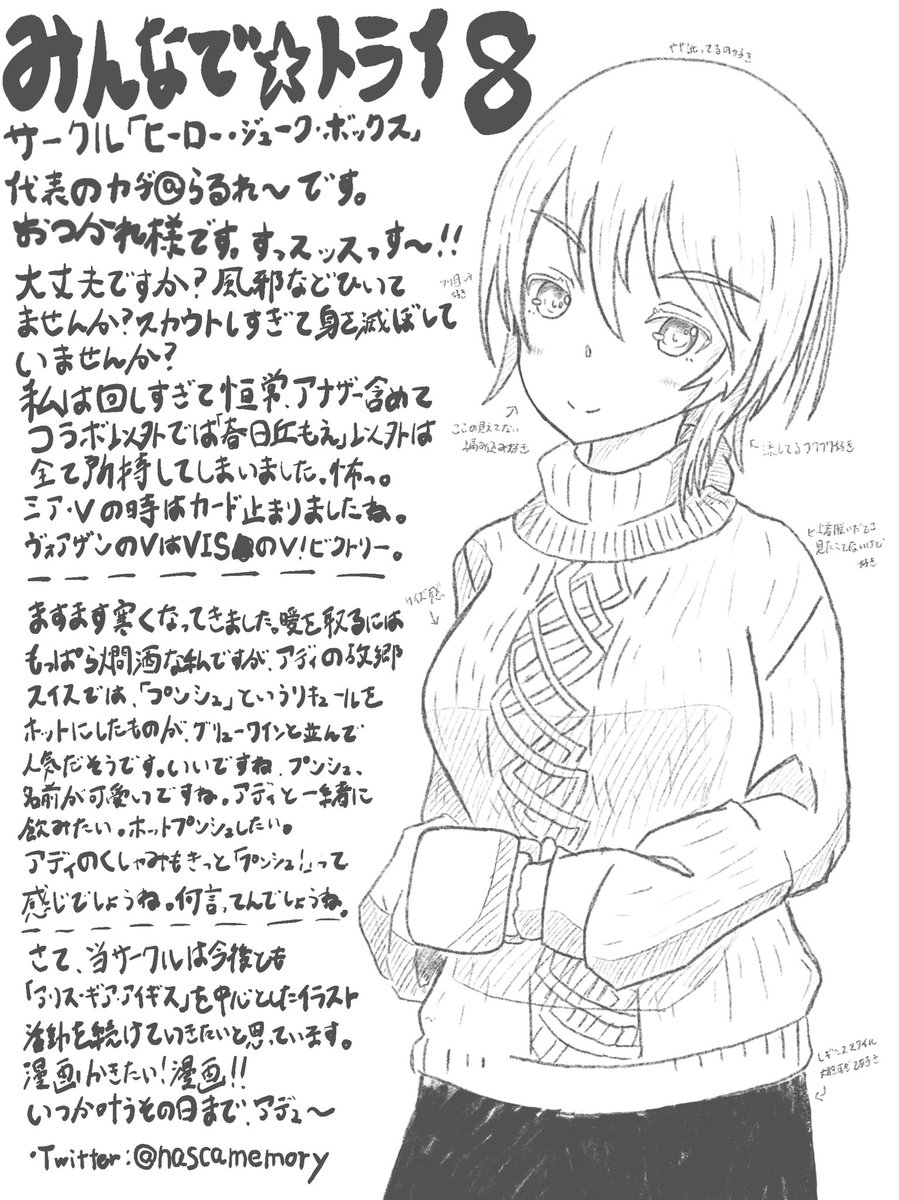 みんなで☆トライ8
サークル「ヒーロー・ジューク・ボックス」
代表のカヂ@らるれ〜です。
おつかれ様です。すっスッスっす〜!!
大丈夫ですか?風邪などひいて
ませんか?スカウトしすぎて身を滅ぼして
いませんか?
私は回しすぎて恒常、アナザー含めて
コラボ以外では「春日丘もえ」以外は
全て所持してしまいました。怖っ。
ミア・Vの時はカード止まりましたね。
ヴォアザンのVはVISAのV!ビクトリー。
ますます寒くなってきました。暖を取るには
もっぱら燗酒な私ですが、アディの故郷
スイスでは、「プンシュ」というリキュールを
ホットにしたものが、グリューワインと並んで
人気だそうです。いいですね、プンシュ、
名前が可愛いですね。アディと一緒に
飲みたい。ホットプンシュしたい。
アディのくしゃみもきっと「プンシュ!」って
感じでしょうね。何言ってんでしょうね。
さて、当サークルは今後とも
「アリス・ギア・アイギス」を中心としたイラスト
活動を続けていきたいと思っています。
漫画かきたい!漫画!!
いつか叶うその日まで、アデュ〜
・Twitter:@nascamemory
ここの見えてない
編み込み好き